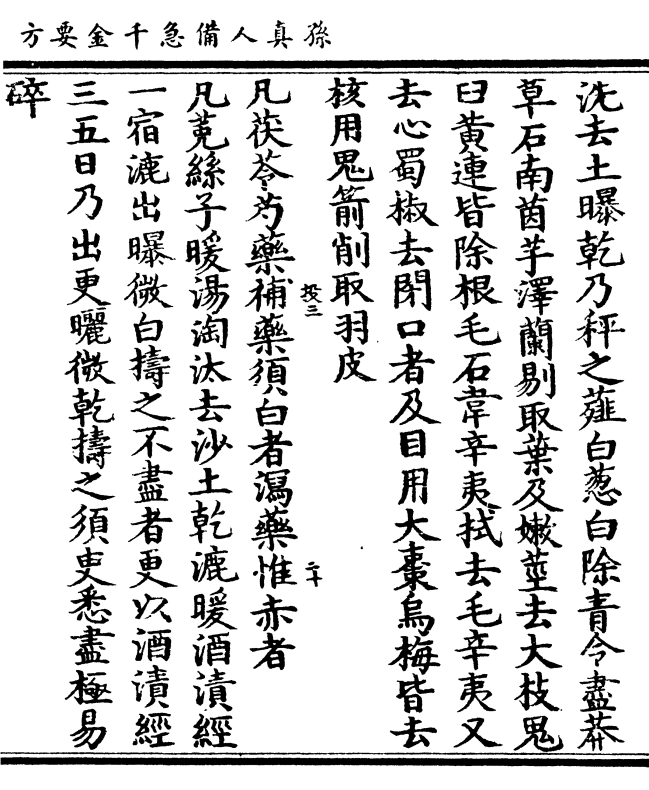 孫真人備急千金要方
洗去土曝乾乃秤之薤白葱白除青令盡莽
草石南茵芋澤蘭剔取葉及嫩莖去大枝鬼
臼黃連皆除根毛石韋辛夷拭去毛辛夷又
去心蜀椒去閉口者及目用大棗烏梅皆去
核用鬼箭削取羽皮
凡茯苓芍藥補藥須白者瀉藥惟赤者
凡菟絲子暖湯淘汰去沙土乾漉暖酒漬經
一宿漉出曝微白擣之不盡者更以酒漬經
三五日乃出更曬微乾擣之須臾悉盡極易
碎